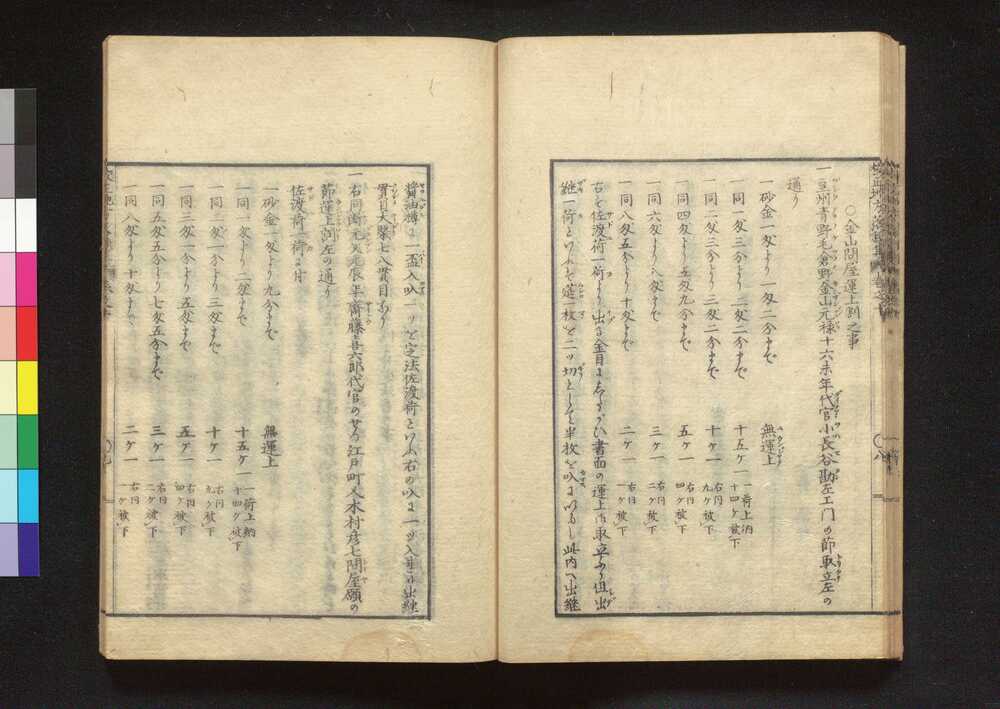 ○金山問屋運上割之事
一豆州青野毛倉野金山元禄十六未年代官小長谷勘左エ門の節取立左の
通り
一砂金一匁より一匁二分まで 無運上
一同一匁三分より二匁二分まで 十五ケ一 一荷上納 十四ケ被下
一同二匁三分より三匁二分まで 十ケ一 右同 九ケ被下
一同四匁より五匁九分まで 五ケ一 右同 四ケ被下
一同六匁より八匁まで 三ケ一 右同 二ケ被下
一同八匁五分より十匁まで 二ケ一 右同 一ケ被下
右を佐渡荷一荷より出る金目にしたがひ書面の運上取立あり但出
継一荷といふハ莚一枚を二ッ切として半枚を叺に此内へ出継
醤油樽に一盃入叺一ッを定法佐渡荷といふ右の叺に一ッ入是ハ出継
貫目大槩七八貫目あり
一右同断元文元辰年齋藤喜六郎代官のせつ江戸町人木村彦七問屋願の
節運上訶左の通り
佐渡荷一荷に付
一砂金一匁より九分まで 無運上
一同一匁より二匁まで 十五ケ一 一荷上納 十四ケ被下
一同二匁一分より三匁まで 十ケ一 右同 九ケ被下
一同三匁一分より五匁まで 五ケ一 右同 四ケ被下
一同五匁五分より七匁五分まで 三ケ一 右同 二ケ被下
一同八匁より十匁まで 二ケ一 右同 一ケ被下